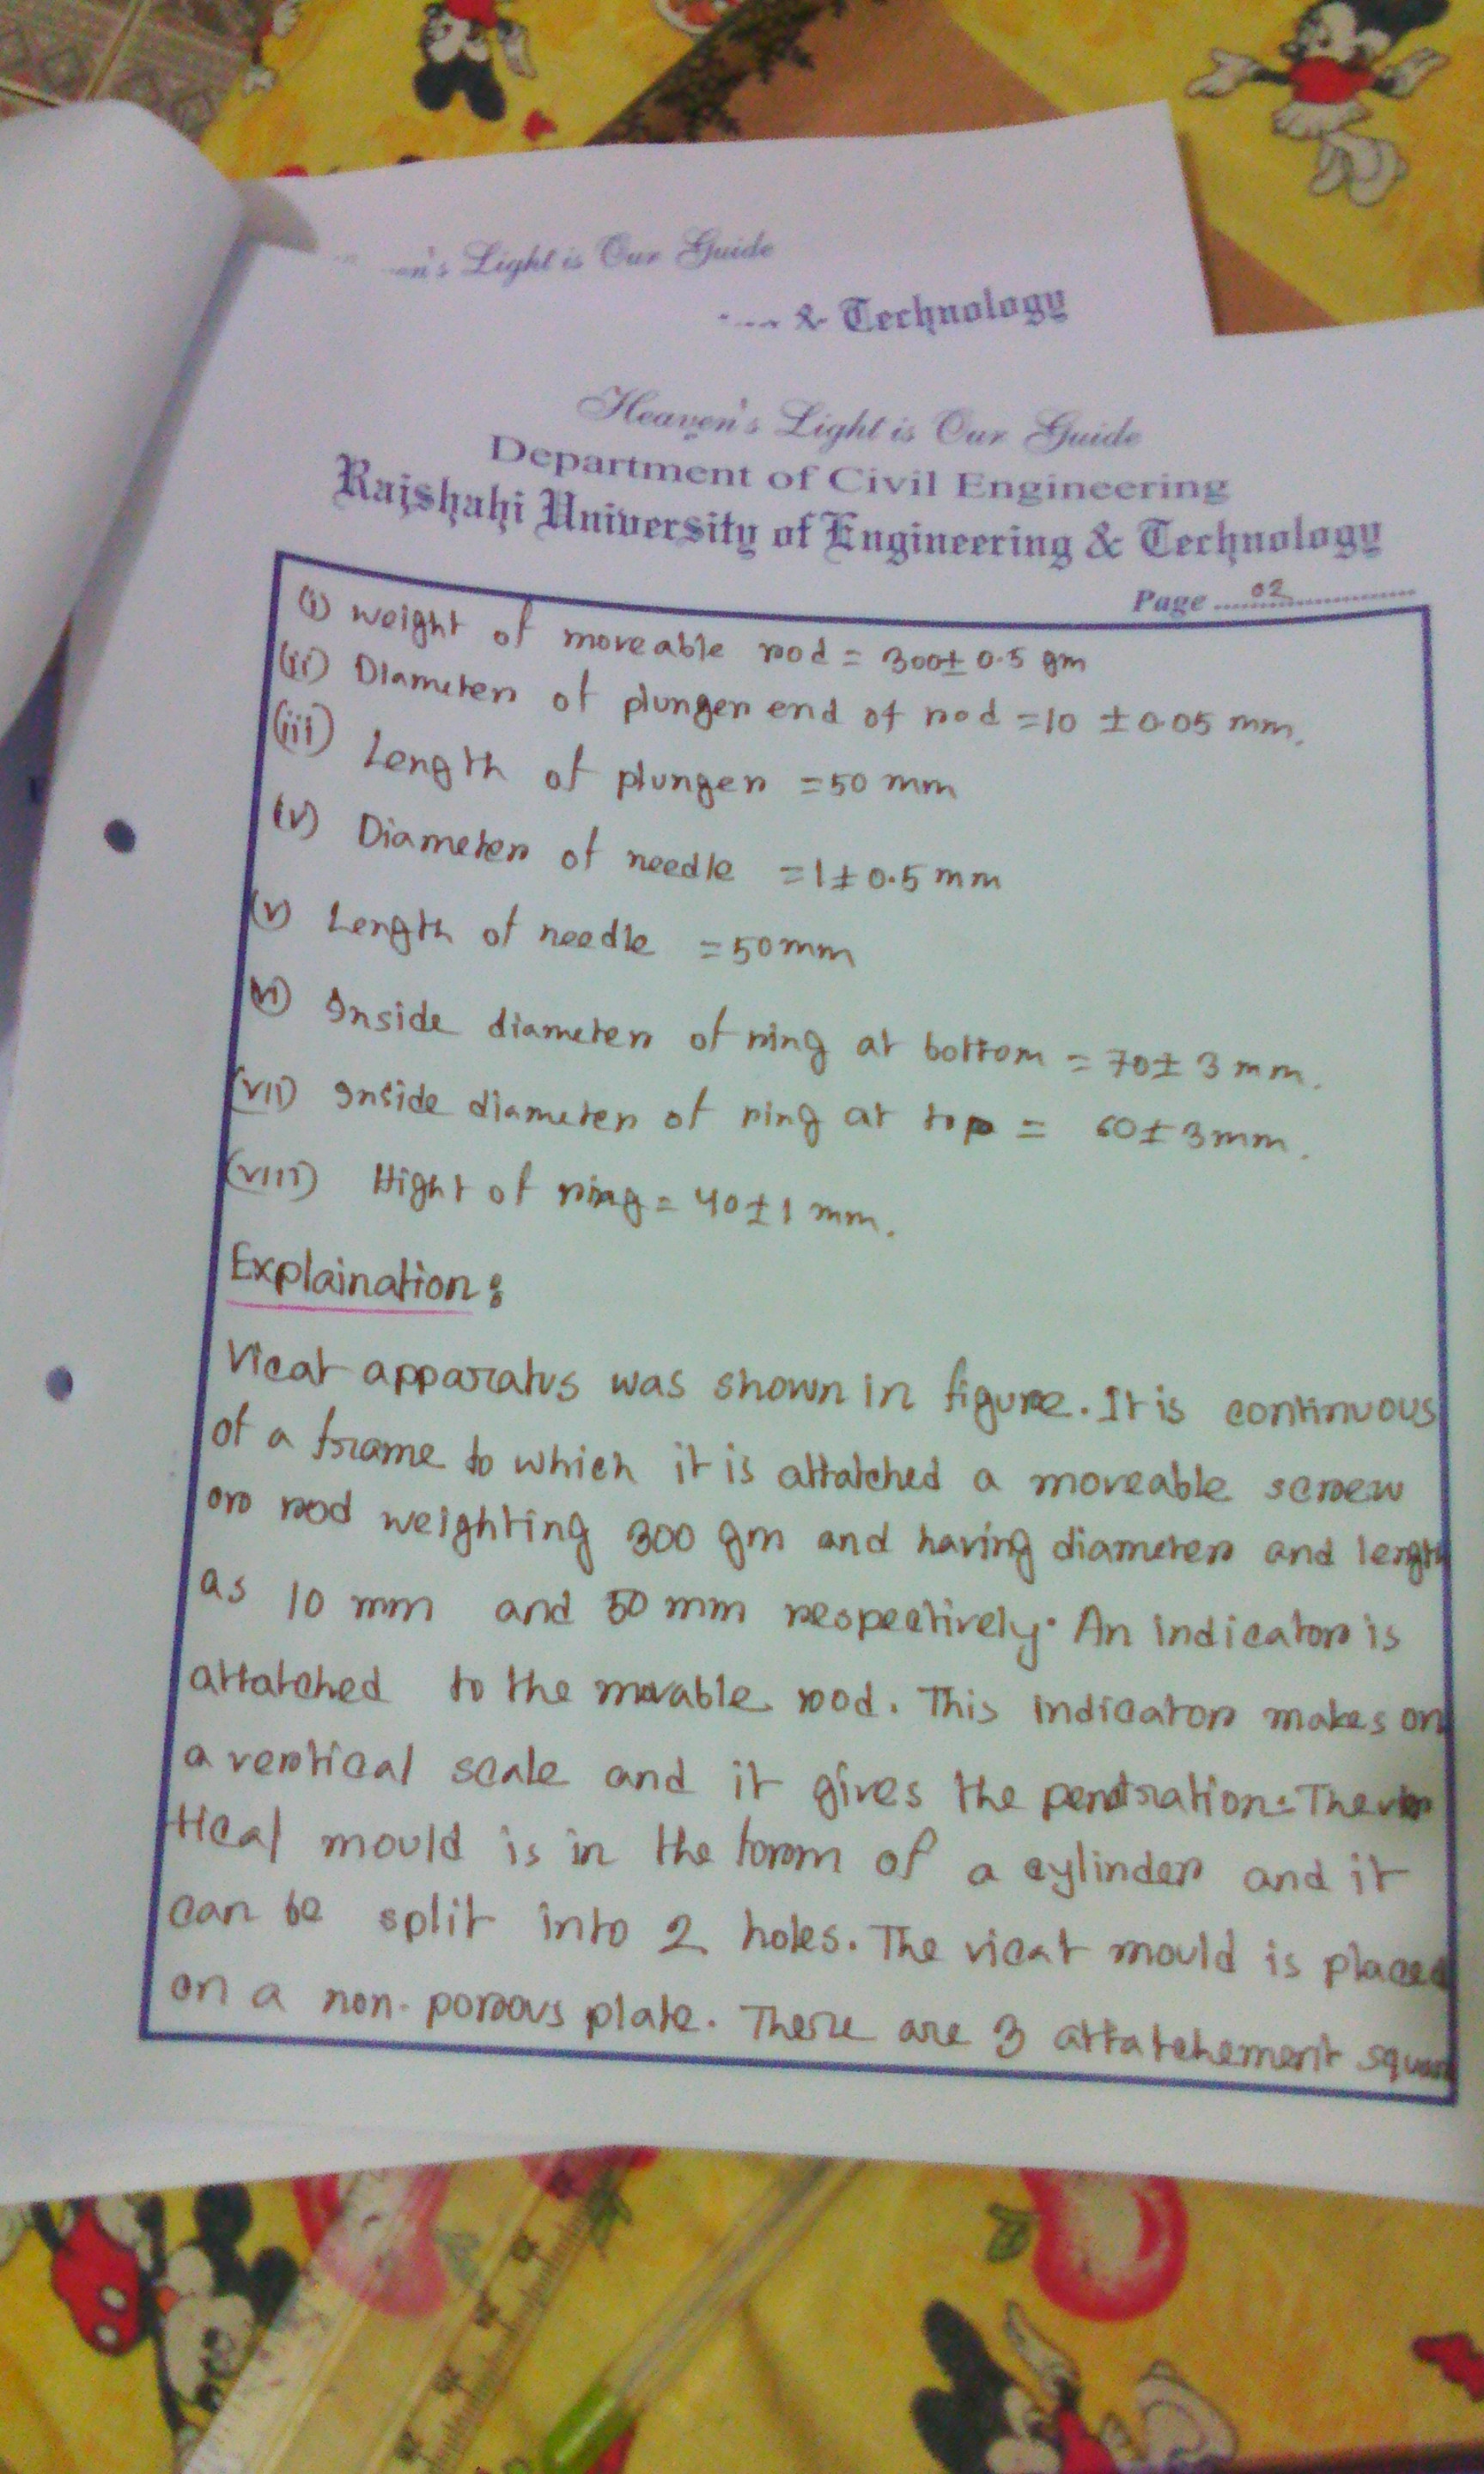 Light is Our Guide
& Technology
Heaven's Light is Our Guide
Department of Civil Engineering
Rajshahi University of Engineering & Technology
Page 02
(i) weight of moveable rod = 300± 0.5 gm
(ii) Diameter of plunger end of rod = 10 ± 0.05 mm.
(iii) Length of plunger = 50 mm
(v) Diameter of needle = 1 ± 0.5 mm
(v) Length of needle = 50 mm
(vi) Inside diameter of ring at bottom = 70± 3 mm.
(vii) Inside diameter of ring at top = 60± 3 mm.
(viii) Hight of ring = 40±1 mm.
Explaination:
Vicat apparatus was shown in figure. It is continuous
of a frame to which it is attatched a moveable screw
or rod weighting 300 gm and having diameter and length
as 10 mm and 50 mm respectively. An indicator is
attatched to the movable rod. This indicator makes on
a vertical scale and it gives the penetration. The ver
tical mould is in the form of a cylinder and it
can be split into 2 holes. The vicat mould is placed
on a non-porous plate. There are 3 attatchement